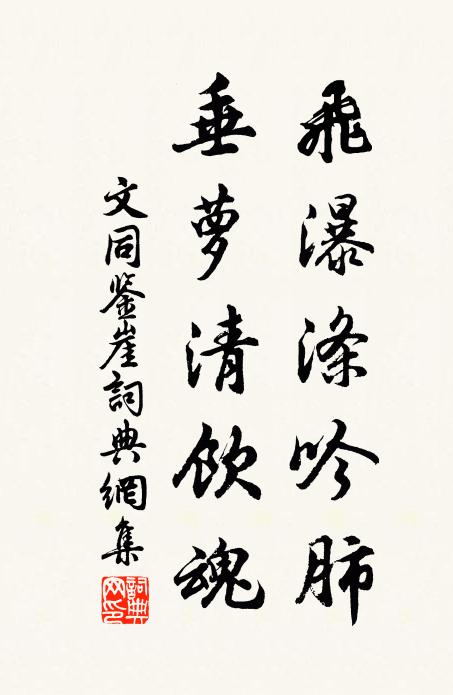 飛瀑滌吟肺
垂萝清飲魂
文同鉴崖詞典網集
詞典網印